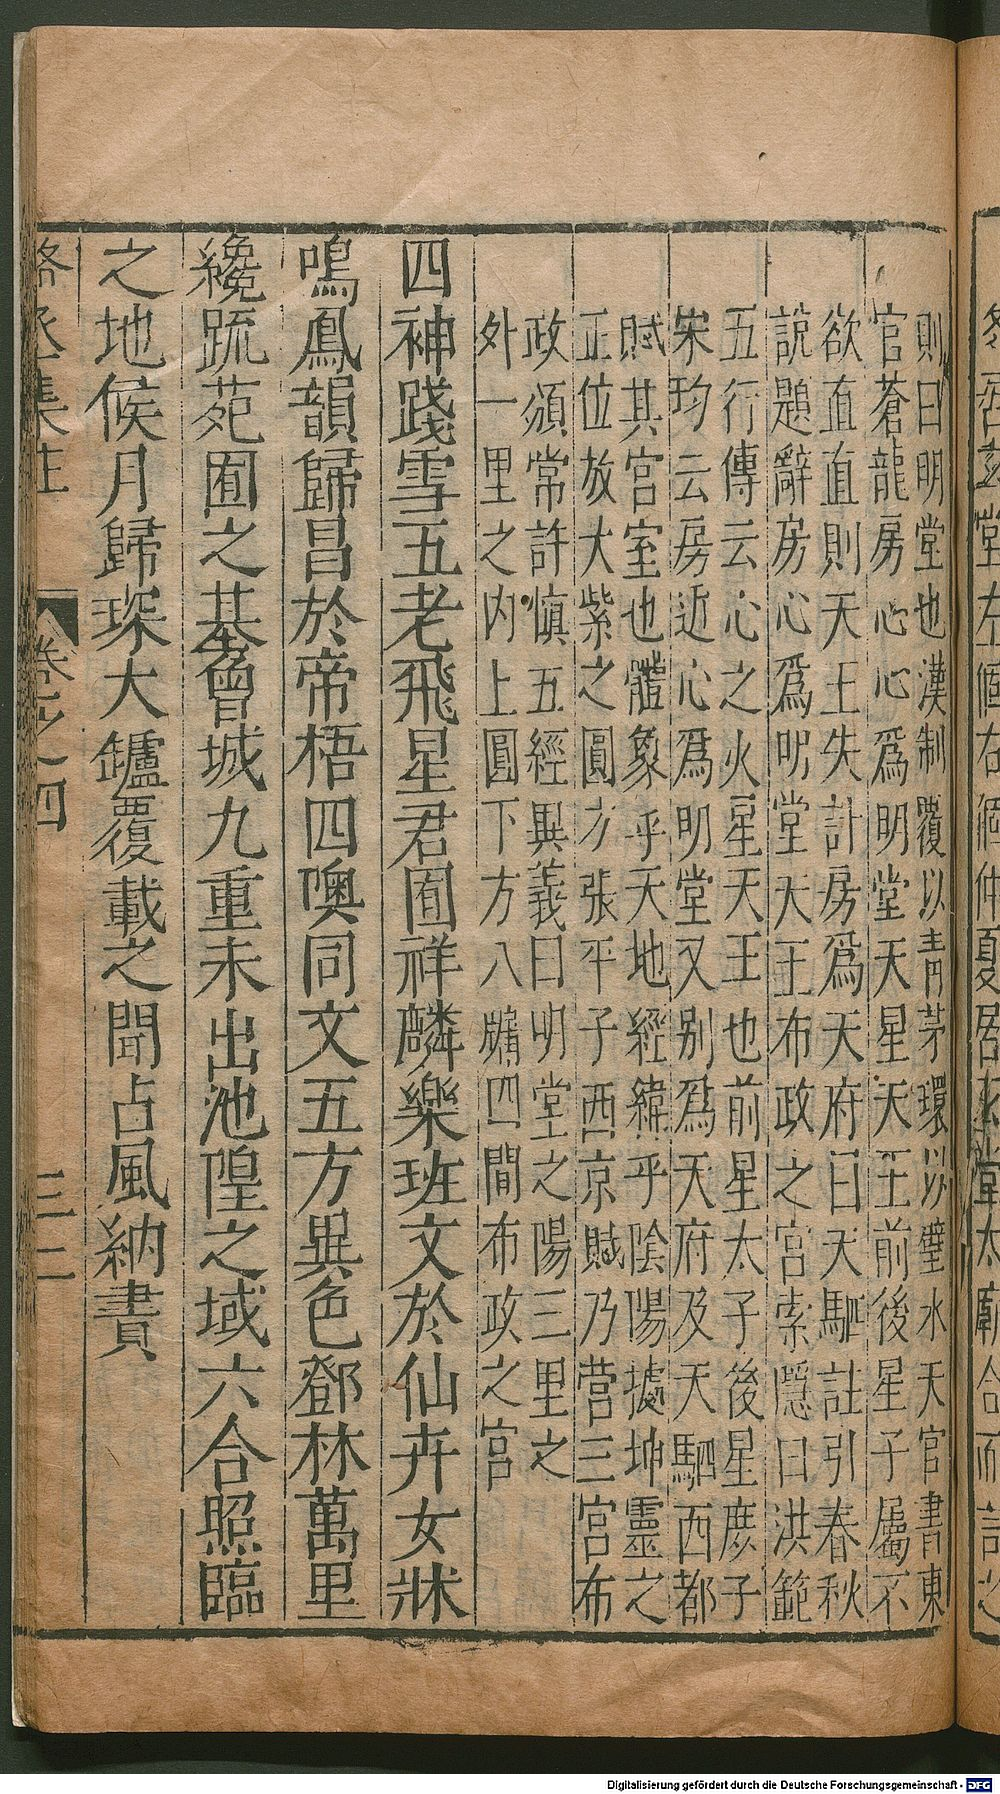 則曰明堂也漢制覆以青茅環以璧水天官書東
官蒼龍房心心爲明堂天星天王前後星子屬不
欲直直則天王失計房爲天府曰天駟註引春秋
說題辭房心爲明堂天王布政之宮索隱曰洪範
五行傳云心之火星天王也前星太子後星庶子
宋均云房近心爲明堂又別爲天府及天駟西都
賦其宮室也體象乎天地經緯乎陰陽據坤靈之
正位放大紫之圓方張平子西京賦乃營三宮布
政頒常許慎五經異義曰明堂之陽三里之
外一里之內上圓下方八牖四闥布政之宮
四神踐雪五老飛星君囿祥麟樂班文於仙卉女牀
鳴鳳韻歸昌於帝梧四噢同文五方異色鄧林萬里
纔䟽苑囿之基曾城九重未出池隍之域六合照臨
之地候月歸琛大鑪覆載之聞占風納賮
駱丞集註 卷之四 三二
Digitalisierung gefördert durch die Deutsche Forschungsgemeinschaft - DFG